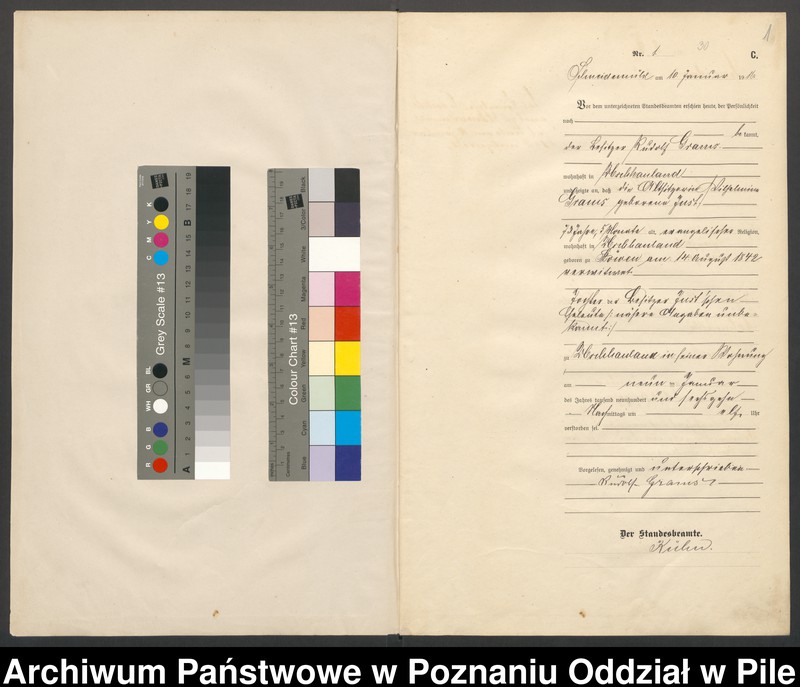 Grey Scale #13
C M Y K
R G B WH GR BL
A 1 2 3 4 5 6 M 8 9 10 11 12 13 14 15 B 17 18 19
Colour Chart #13
Blue Cyan Green Yellow Red Magenta White 3/Color Black
Centimetres
1
Nr. 1 30 C.
Schneidemühl am 10 Januar 1916
Vor dem unterzeichneten Standesbeamten erschien heute, der Persönlichkeit
nach
be kannt,
der Besitzer Rudolf Grams
wohnhaft in
und zeigte an, daß die Altsitzerin Wilhelmine
Grams geborene Just
73 Jahre, 5 Monate alt, evangelischer Religion,
wohnhaft in
geboren zu am 14 August 1842
verwitwet
Tochter der Besitzer Just'schen
Eheleute, nähere Angaben unbe-
kannt
zu in seiner Wohnung
am neun Januar
des Jahres tausend neunhundert und sechszehn
Nachmittags um elf Uhr
verstorben sei.
Vorgelesen, genehmigt und unterschrieben
Rudolf Grams
Der Standesbeamte.
Kühn.
Archiwum Państwowe w Poznaniu Oddział w Pile